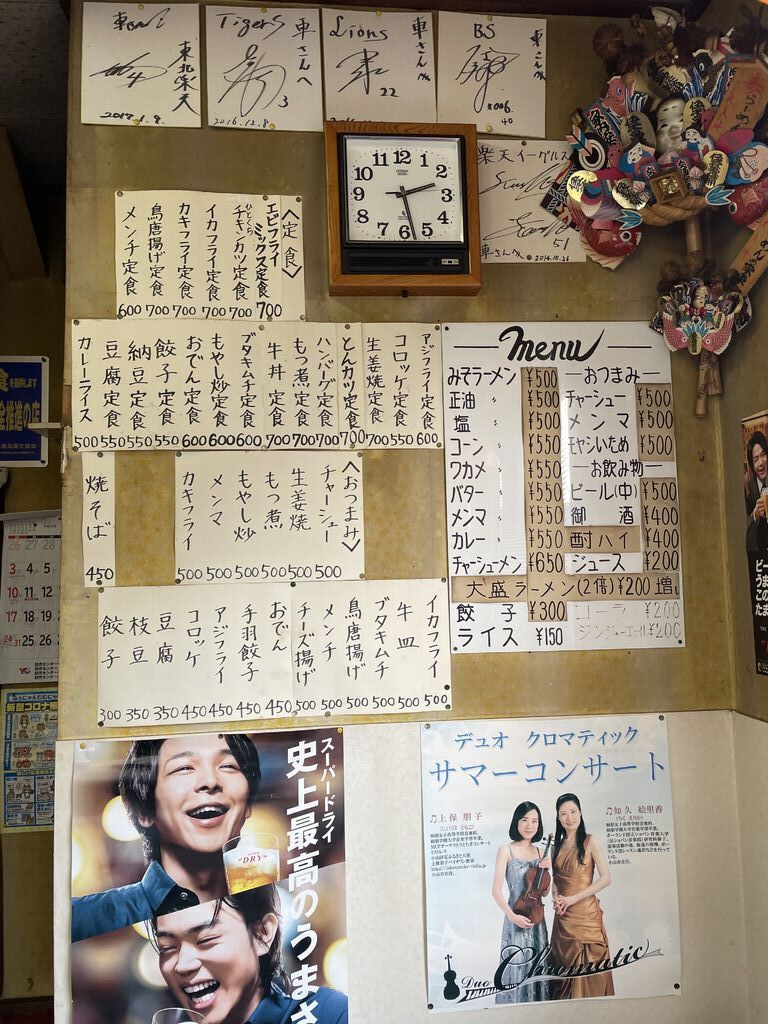 東北楽天
2017.1.8.
Tigers
車さんへ
3
2016.12.8
Lions
車さんへ
22
BS
車さんへ
2006.
40
楽天イーグルス
51
車さんへ
2014.10.26
12
1
2
3
4
5
6
7
8
9
10
11
〈定食〉
エビフライ
ミックス定食 700
ひとくち
チキンカツ定食 700
イカフライ定食 700
カキフライ定食 700
鳥唐揚げ定食 700
メンチ定食 600
アジフライ定食 600
コロッケ定食 550
生姜焼定食 700
とんカツ定食 700
ハンバーグ定食 700
もつ煮定食 700
牛丼定食 700
ブタキムチ定食 600
もやし炒定食 600
おでん定食 600
餃子定食 550
納豆定食 550
豆腐定食 550
カレーライス 500
焼そば 450
〈おつまみ〉
チャーシュー 500
生姜焼 500
もつ煮 500
もやし炒 500
メンマ 500
カキフライ 500
イカフライ 500
牛皿 500
ブタキムチ 500
鳥唐揚げ 500
メンチ 500
チーズ揚げ 500
おでん 450
手羽餃子 450
アジフライ 450
コロッケ 450
豆腐 350
枝豆 350
餃子 300
menu
みそラーメン ¥500
正油 〃 ¥500
塩 〃 ¥500
コーン 〃 ¥550
ワカメ 〃 ¥550
バター 〃 ¥550
メンマ 〃 ¥550
カレー 〃 ¥550
チャーシューメン ¥650
―おつまみ―
チャーシュー ¥500
メンマ ¥500
モヤシいため ¥500
―お飲み物―
ビール(中) ¥500
御酒 ¥400
酎ハイ ¥400
ジュース ¥200
大盛ラーメン(2倍)¥200増し
餃子 ¥300
ライス ¥150
コーラ ¥200
ジンジャーエール ¥200
スーパードライ
史上最高のうまさ
DRY
デュオ クロマティック
サマーコンサート
♫上保 朋子
♫知久 絵里香
Duo Chromatic
26 27 28
3 4 5
10 11 12
17 18 19
24/31 25 26
新型コロナ